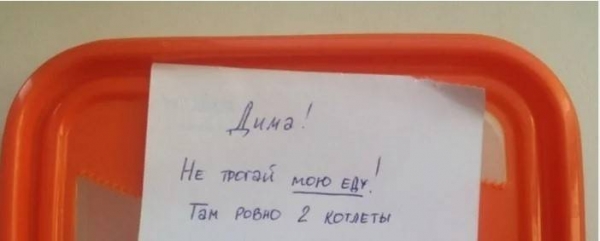 Дима!
Не трогай мою еду!
Там ровно 2 котлеты